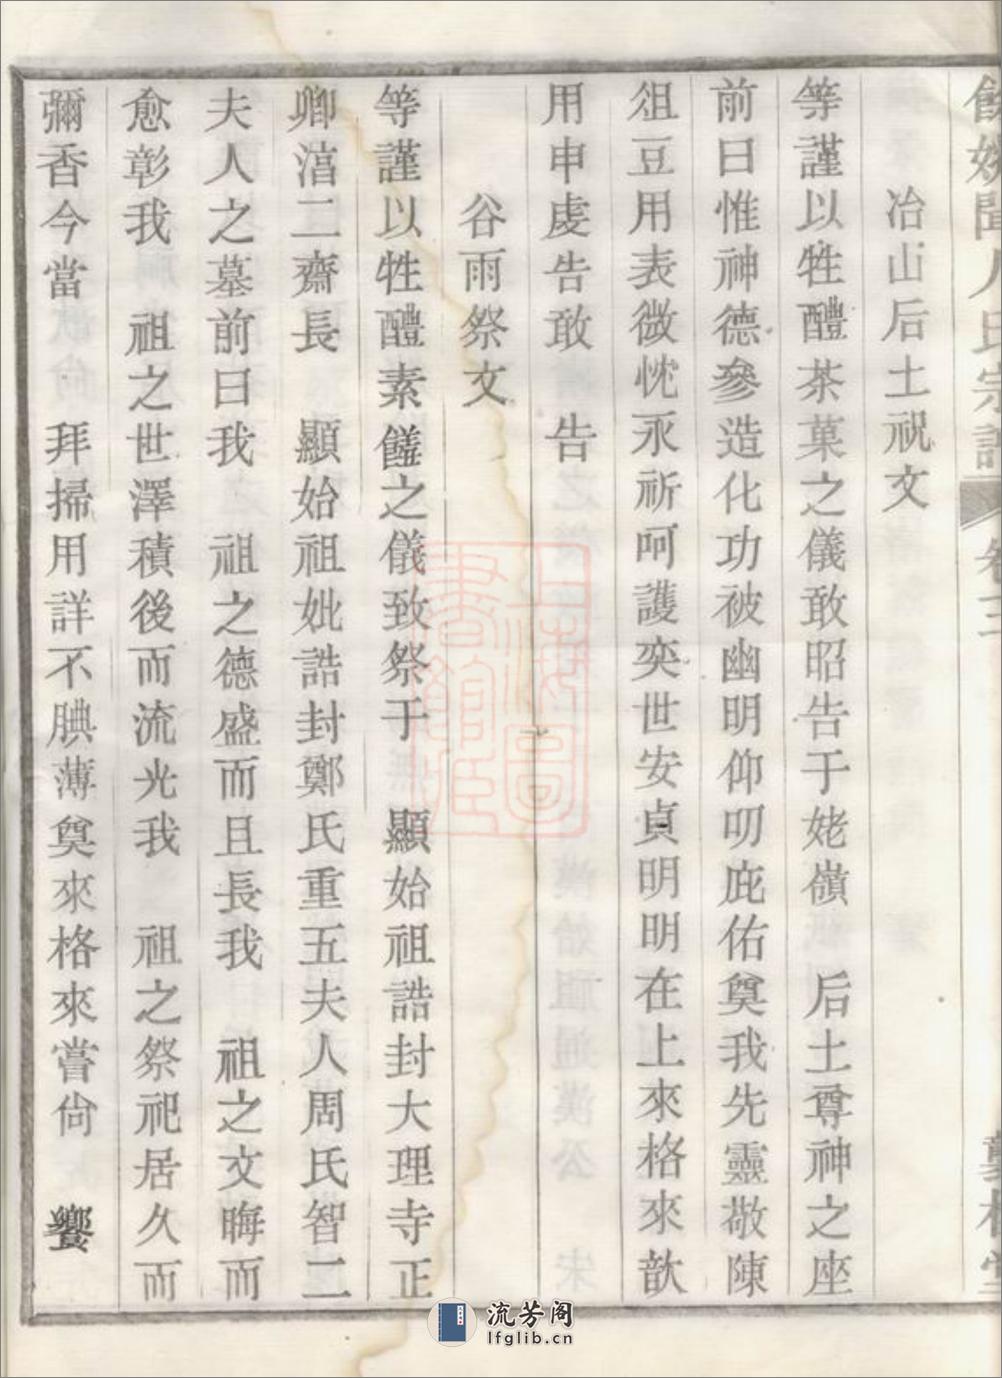 冶山后土祝文
等謹以牲醴茶菓之儀敢昭告于姥嶺　后土尊神之座
前曰惟神德參造化功被幽明仰叨庇佑奠我先靈敬陳
俎豆用表微忱永祈呵護奕世安貞明明在上來格來歆
用申虔告敢　告
谷雨祭文
等謹以牲醴素饈之儀致祭于　顯始祖誥封大理寺正
卿湻二齋長　顯始祖妣誥封鄭氏重五夫人周氏智二
夫人之墓前曰我　祖之德盛而且長我　祖之文晦而
愈彰我　祖之世澤積後而流光我　祖之祭祀居久而
彌香今當　拜掃用詳不腆薄奠來格來嘗尙　饗
上海圖書館藏
流芳阁
lfglib.cn